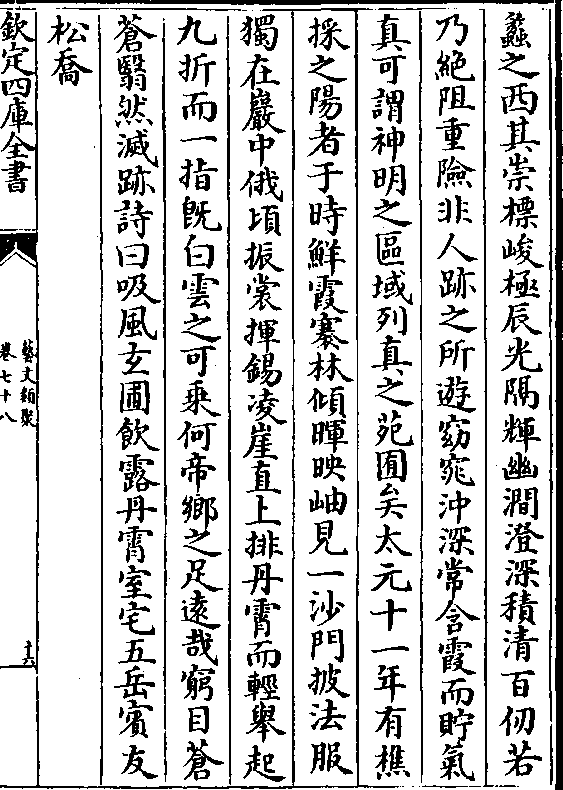 蠡之西其崇標峻極辰光隔輝幽澗澄深積清百仞若
乃絶阻重險非人跡之所遊窈窕沖深常含霞而貯氣
真可謂神明之區域列真之苑囿矣太元十一年有樵
採之陽者于時鮮霞褰林傾暉映岫見一沙門披法服
獨在巖中俄頃振裳揮錫凌崖直上排丹霄而輕舉起
九折而一指既白雲之可乘何帝鄉之足遠哉窮目蒼
蒼翳然滅跡詩曰吸風玄圃飲露丹霄室宅五岳賓友
松喬
欽定四庫全書
藝文類聚
卷七十八
十六